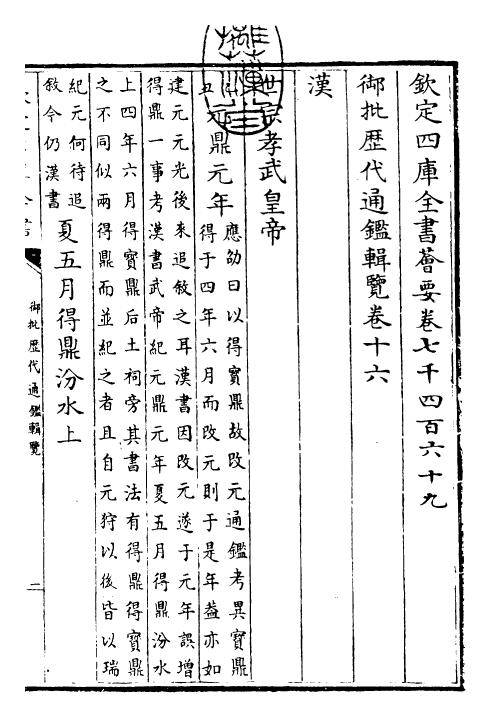 欽定四庫全書薈要卷七千四百六十九
御批歴代通鑑輯覽卷十六
漢
世宗孝武皇帝
丑元鼎元年
應劭曰以得寶鼎故改元通鑑考異寶鼎
得于四年六月而改元則于是年葢亦如
建元元光後來追敘之耳漢書因改元遂于元年誤增
得鼎一事考漢書武帝紀元鼎元年夏五月得鼎汾水
上四年六月得寶鼎后土祠旁其書法有得鼎得寶鼎
之不同似兩得鼎而並紀之者且自元狩以後皆以瑞
紀元何待追
敘今仍漢書
夏五月得鼎汾水上
御批歴代通鑑輯覽